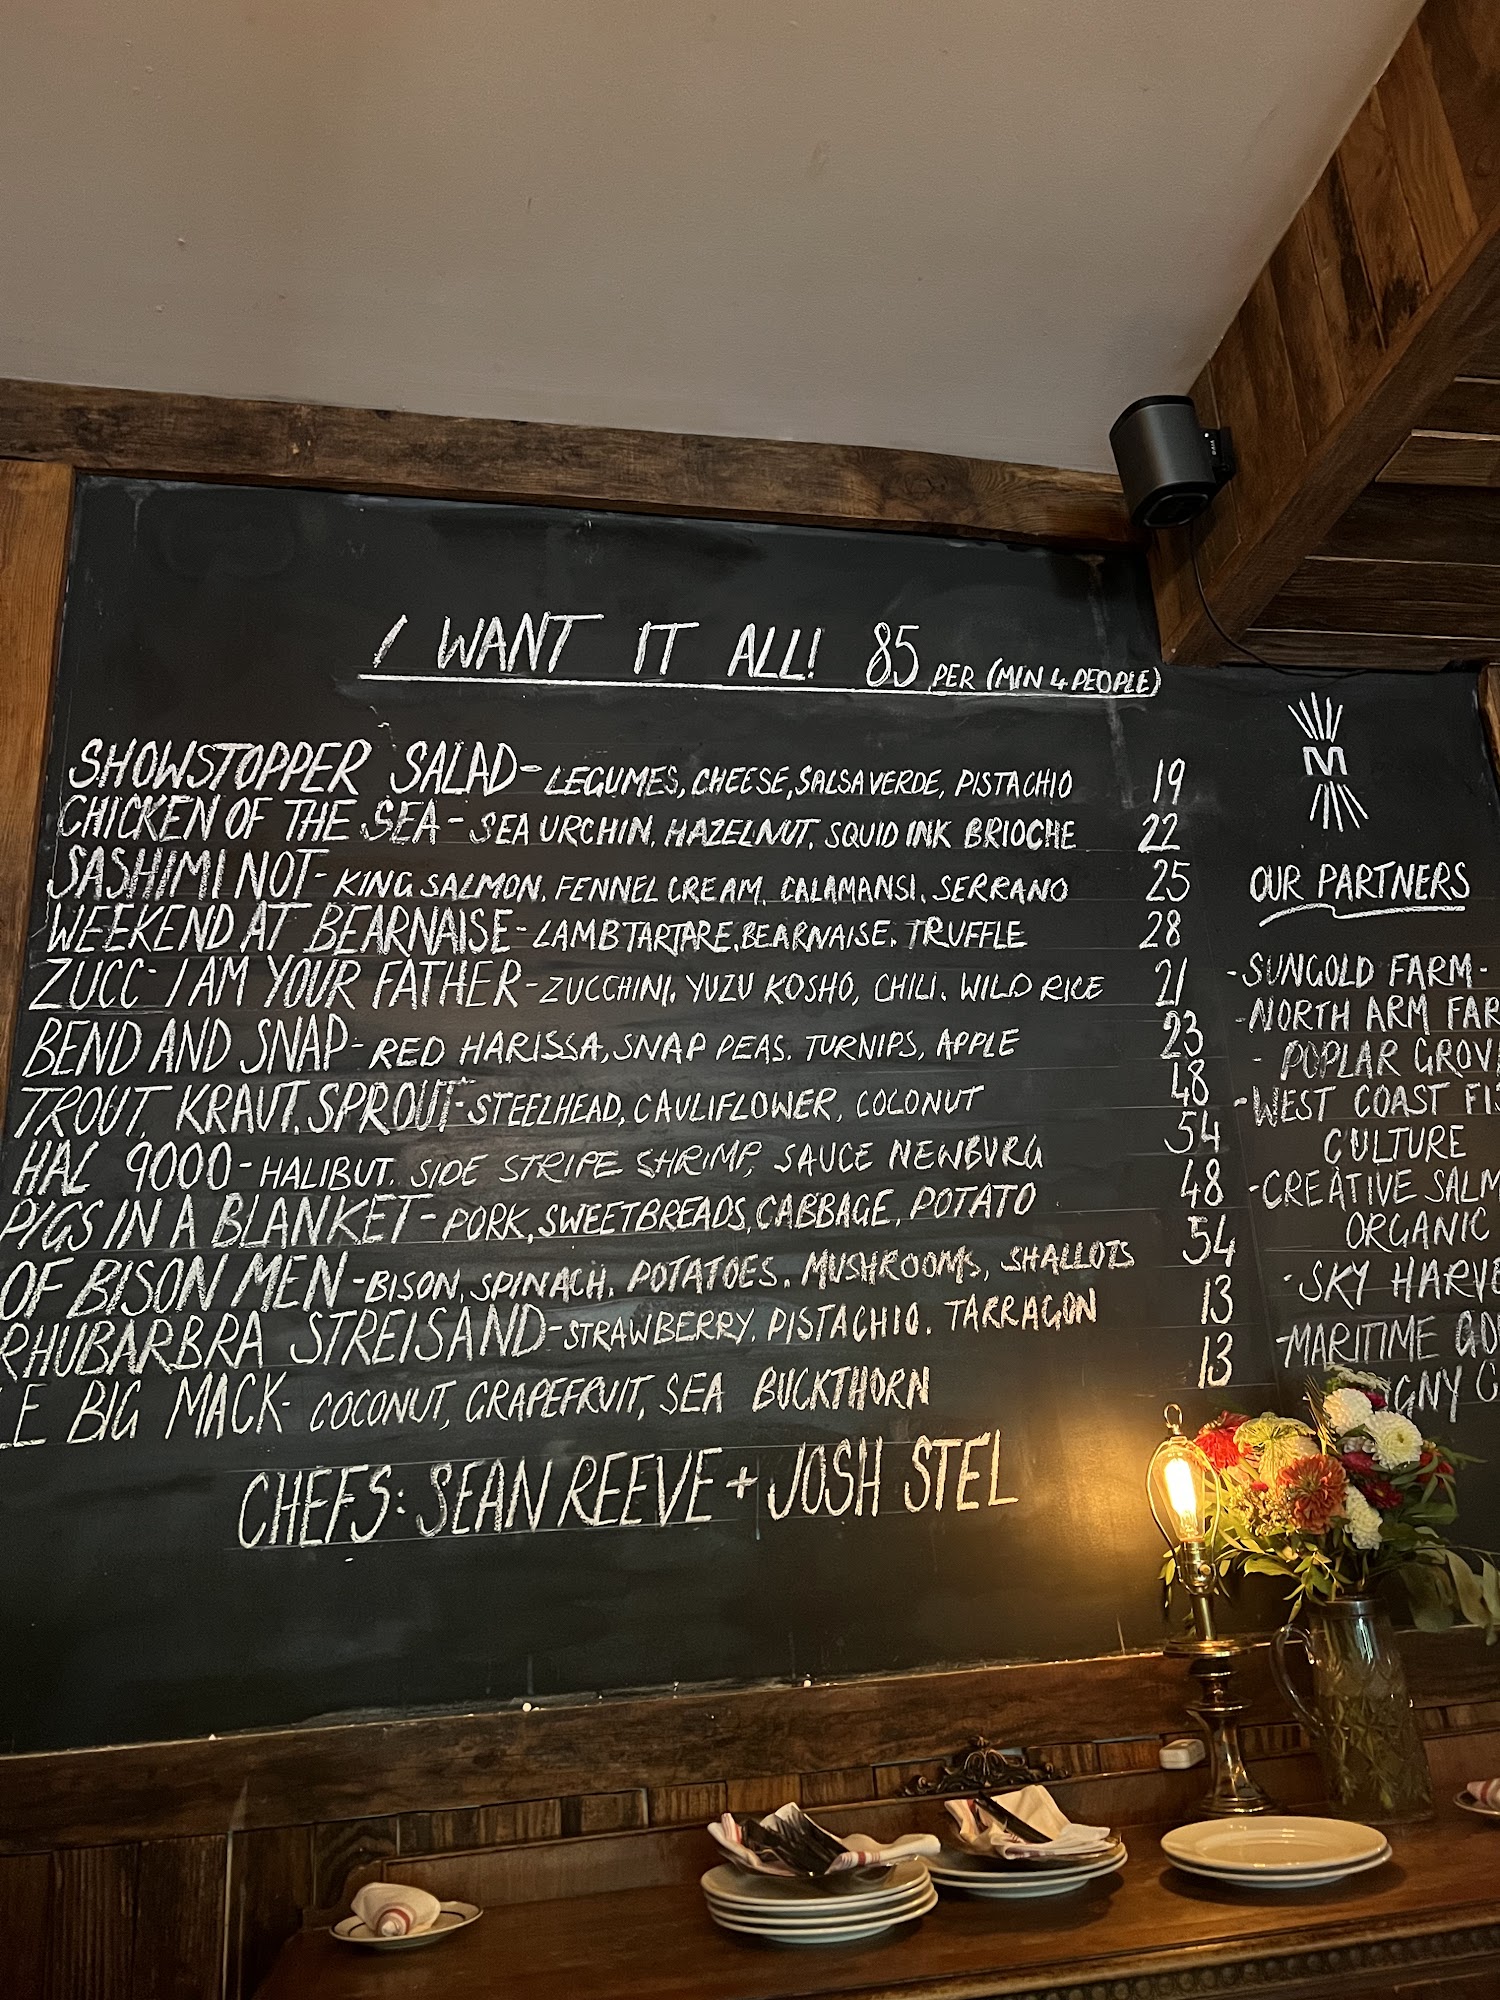 I WANT IT ALL! 85 PER (MIN 4 PEOPLE)
SHOWSTOPPER SALAD - LEGUMES, CHEESE, SALSA VERDE, PISTACHIO 19
CHICKEN OF THE SEA - SEA URCHIN, HAZELNUT, SQUID INK BRIOCHE 22
SASHIMI NOT - KING SALMON, FENNEL CREAM, CALAMANSI, SERRANO 25
WEEKEND AT BEARNAISE - LAMB TARTARE, BEARNAISE, TRUFFLE 28
ZUCC - I AM YOUR FATHER - ZUCCHINI, YUZU KOSHO, CHILI, WILD RICE 21
BEND AND SNAP - RED HARISSA, SNAP PEAS, TURNIPS, APPLE 23
TROUT, KRAUT, SPROUT - STEELHEAD, CAULIFLOWER, COCONUT 48
HAL 9000 - HALIBUT, SIDE STRIPE SHRIMP, SAUCE NEWBURG 54
PIGS IN A BLANKET - PORK, SWEETBREADS, CABBAGE, POTATO 48
OF BISON MEN - BISON, SPINACH, POTATOES, MUSHROOMS, SHALLOTS 54
RHUBARBRA STREISAND - STRAWBERRY, PISTACHIO, TARRAGON 13
LE BIG MACK - COCONUT, GRAPEFRUIT, SEA BUCKTHORN 13
CHEFS: SEAN REEVE + JOSH STEL
M
OUR PARTNERS
- SUNGOLD FARM -
- NORTH ARM FAR
- POPLAR GROV
- WEST COAST FIS
CULTURE
- CREATIVE SALM
ORGANIC
- SKY HARVE
- MARITIME